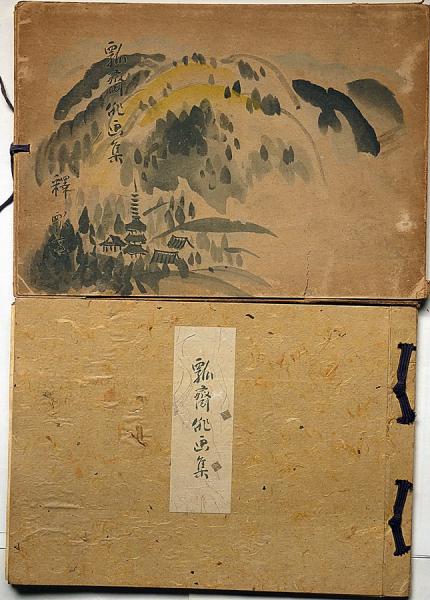 瓢齋俳画集
釋瓢齋
瓢齋俳画集